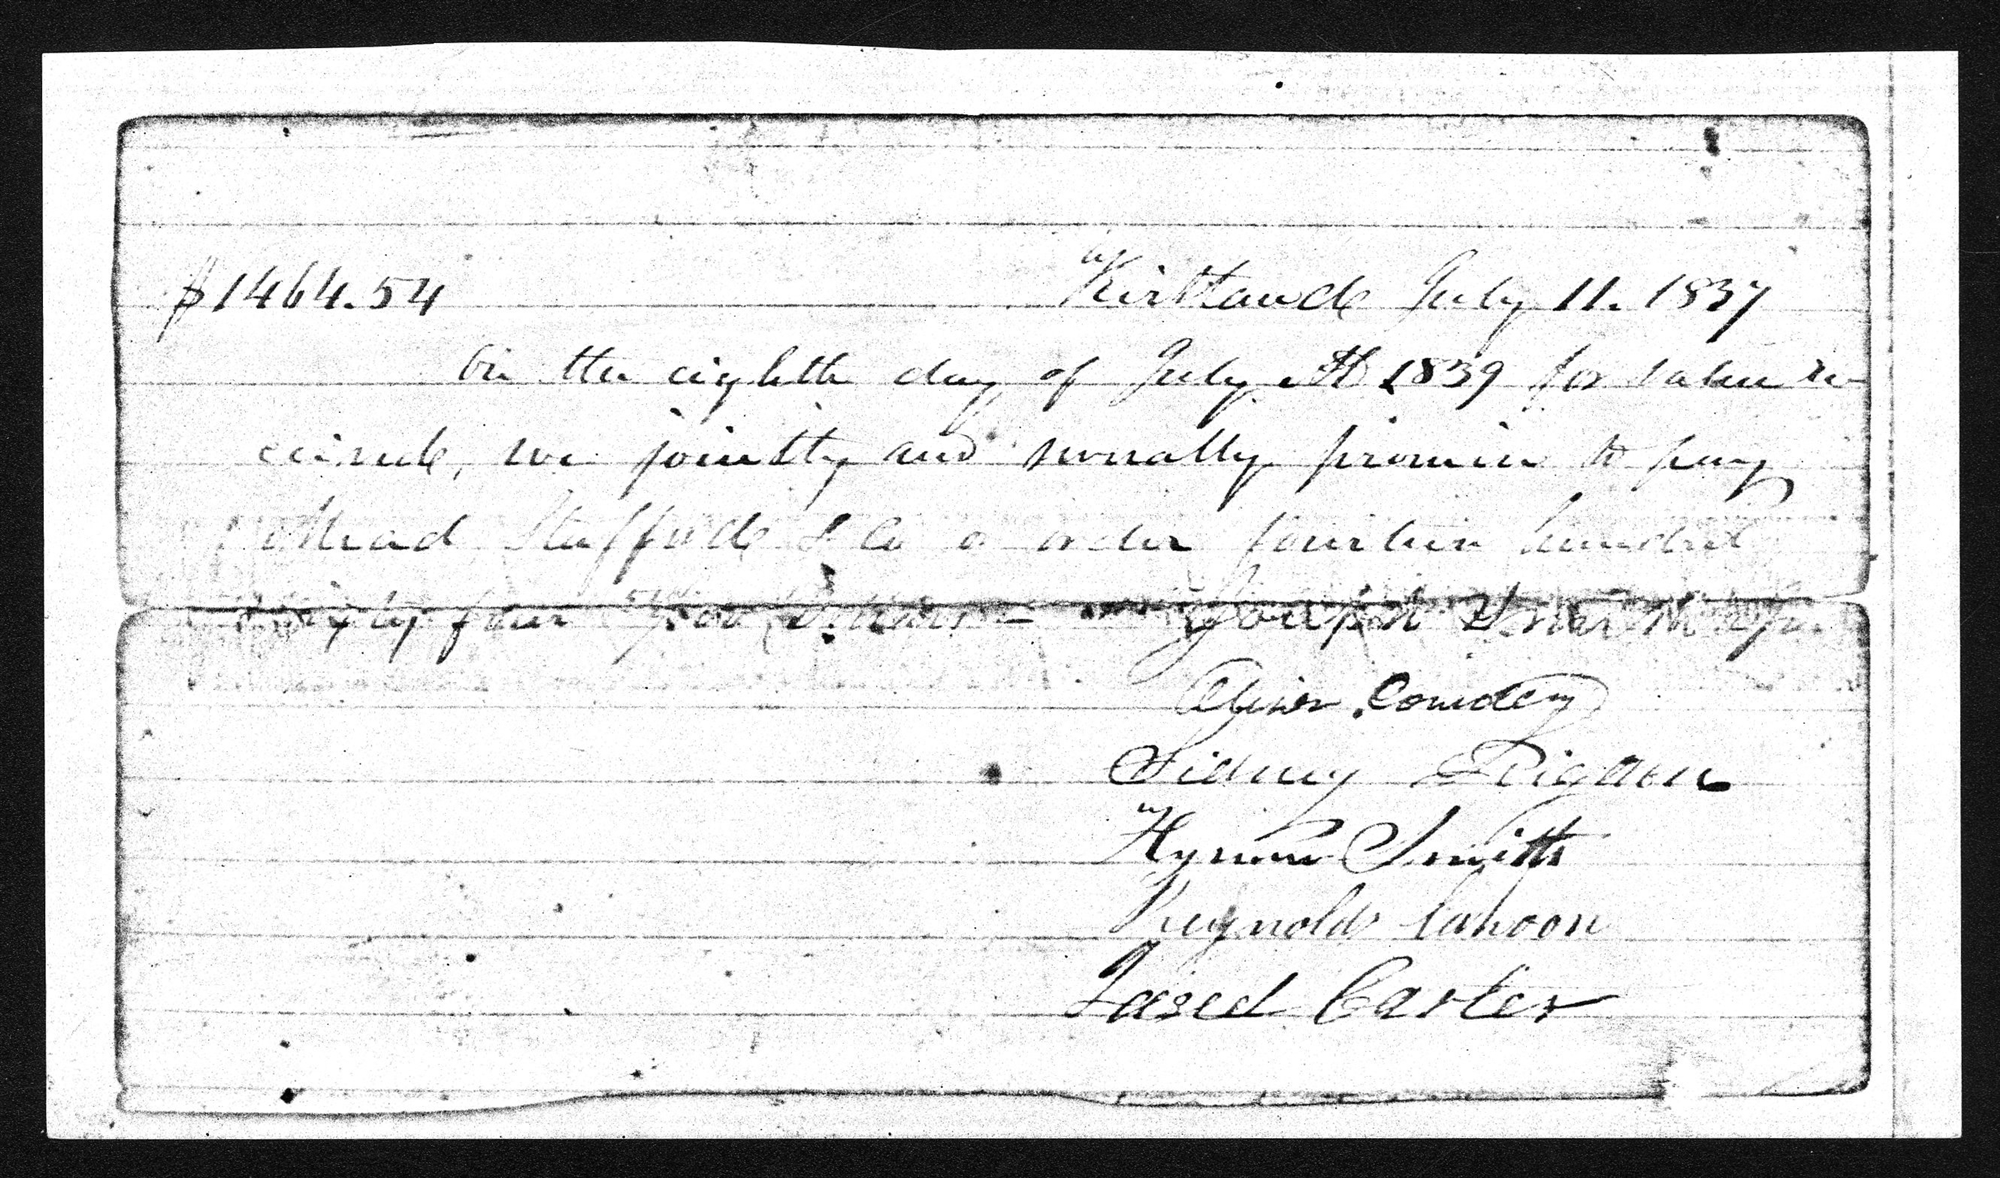 $1464.54 Kirtland July 11. 1837
On the eighth day of July AD 1839 for value re-
ceived, we jointly and severally promise to pay
Mead Stafford & Co or order fourteen hundred
sixty four 54/100 Dollars— Joseph Smith Jr.
Oliver Cowdery
Sidney Rigdon
Hyrum Smith
Reynolds Cahoon
Jared Carter